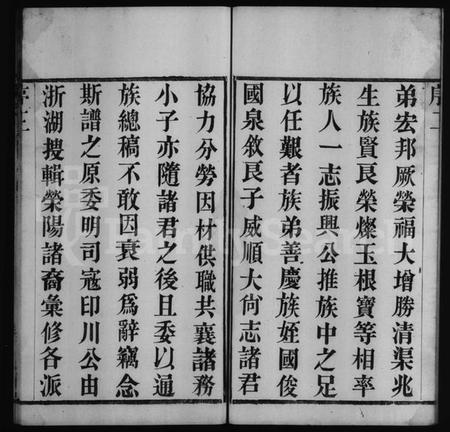 序二
弟宏邦厥榮福大增勝清渠兆
生族賢良榮燦玉根寶等相率
族人一志振興公推族中之足
以任艱者族弟善慶族姪國俊
國泉敘良子威順大尚志諸君
協力分勞因材供職共襄諸務
小子亦隨諸君之後且委以通
族總稿不敢因衰弱爲辭竊念
斯譜之原委明司寇印川公由
浙湖搜輯榮陽諸裔彙修各派